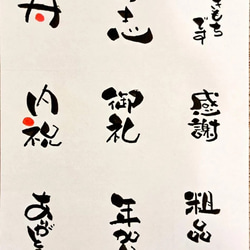 きもち
です
志
内祝
御礼
感謝
ありがと
年賀
粗品